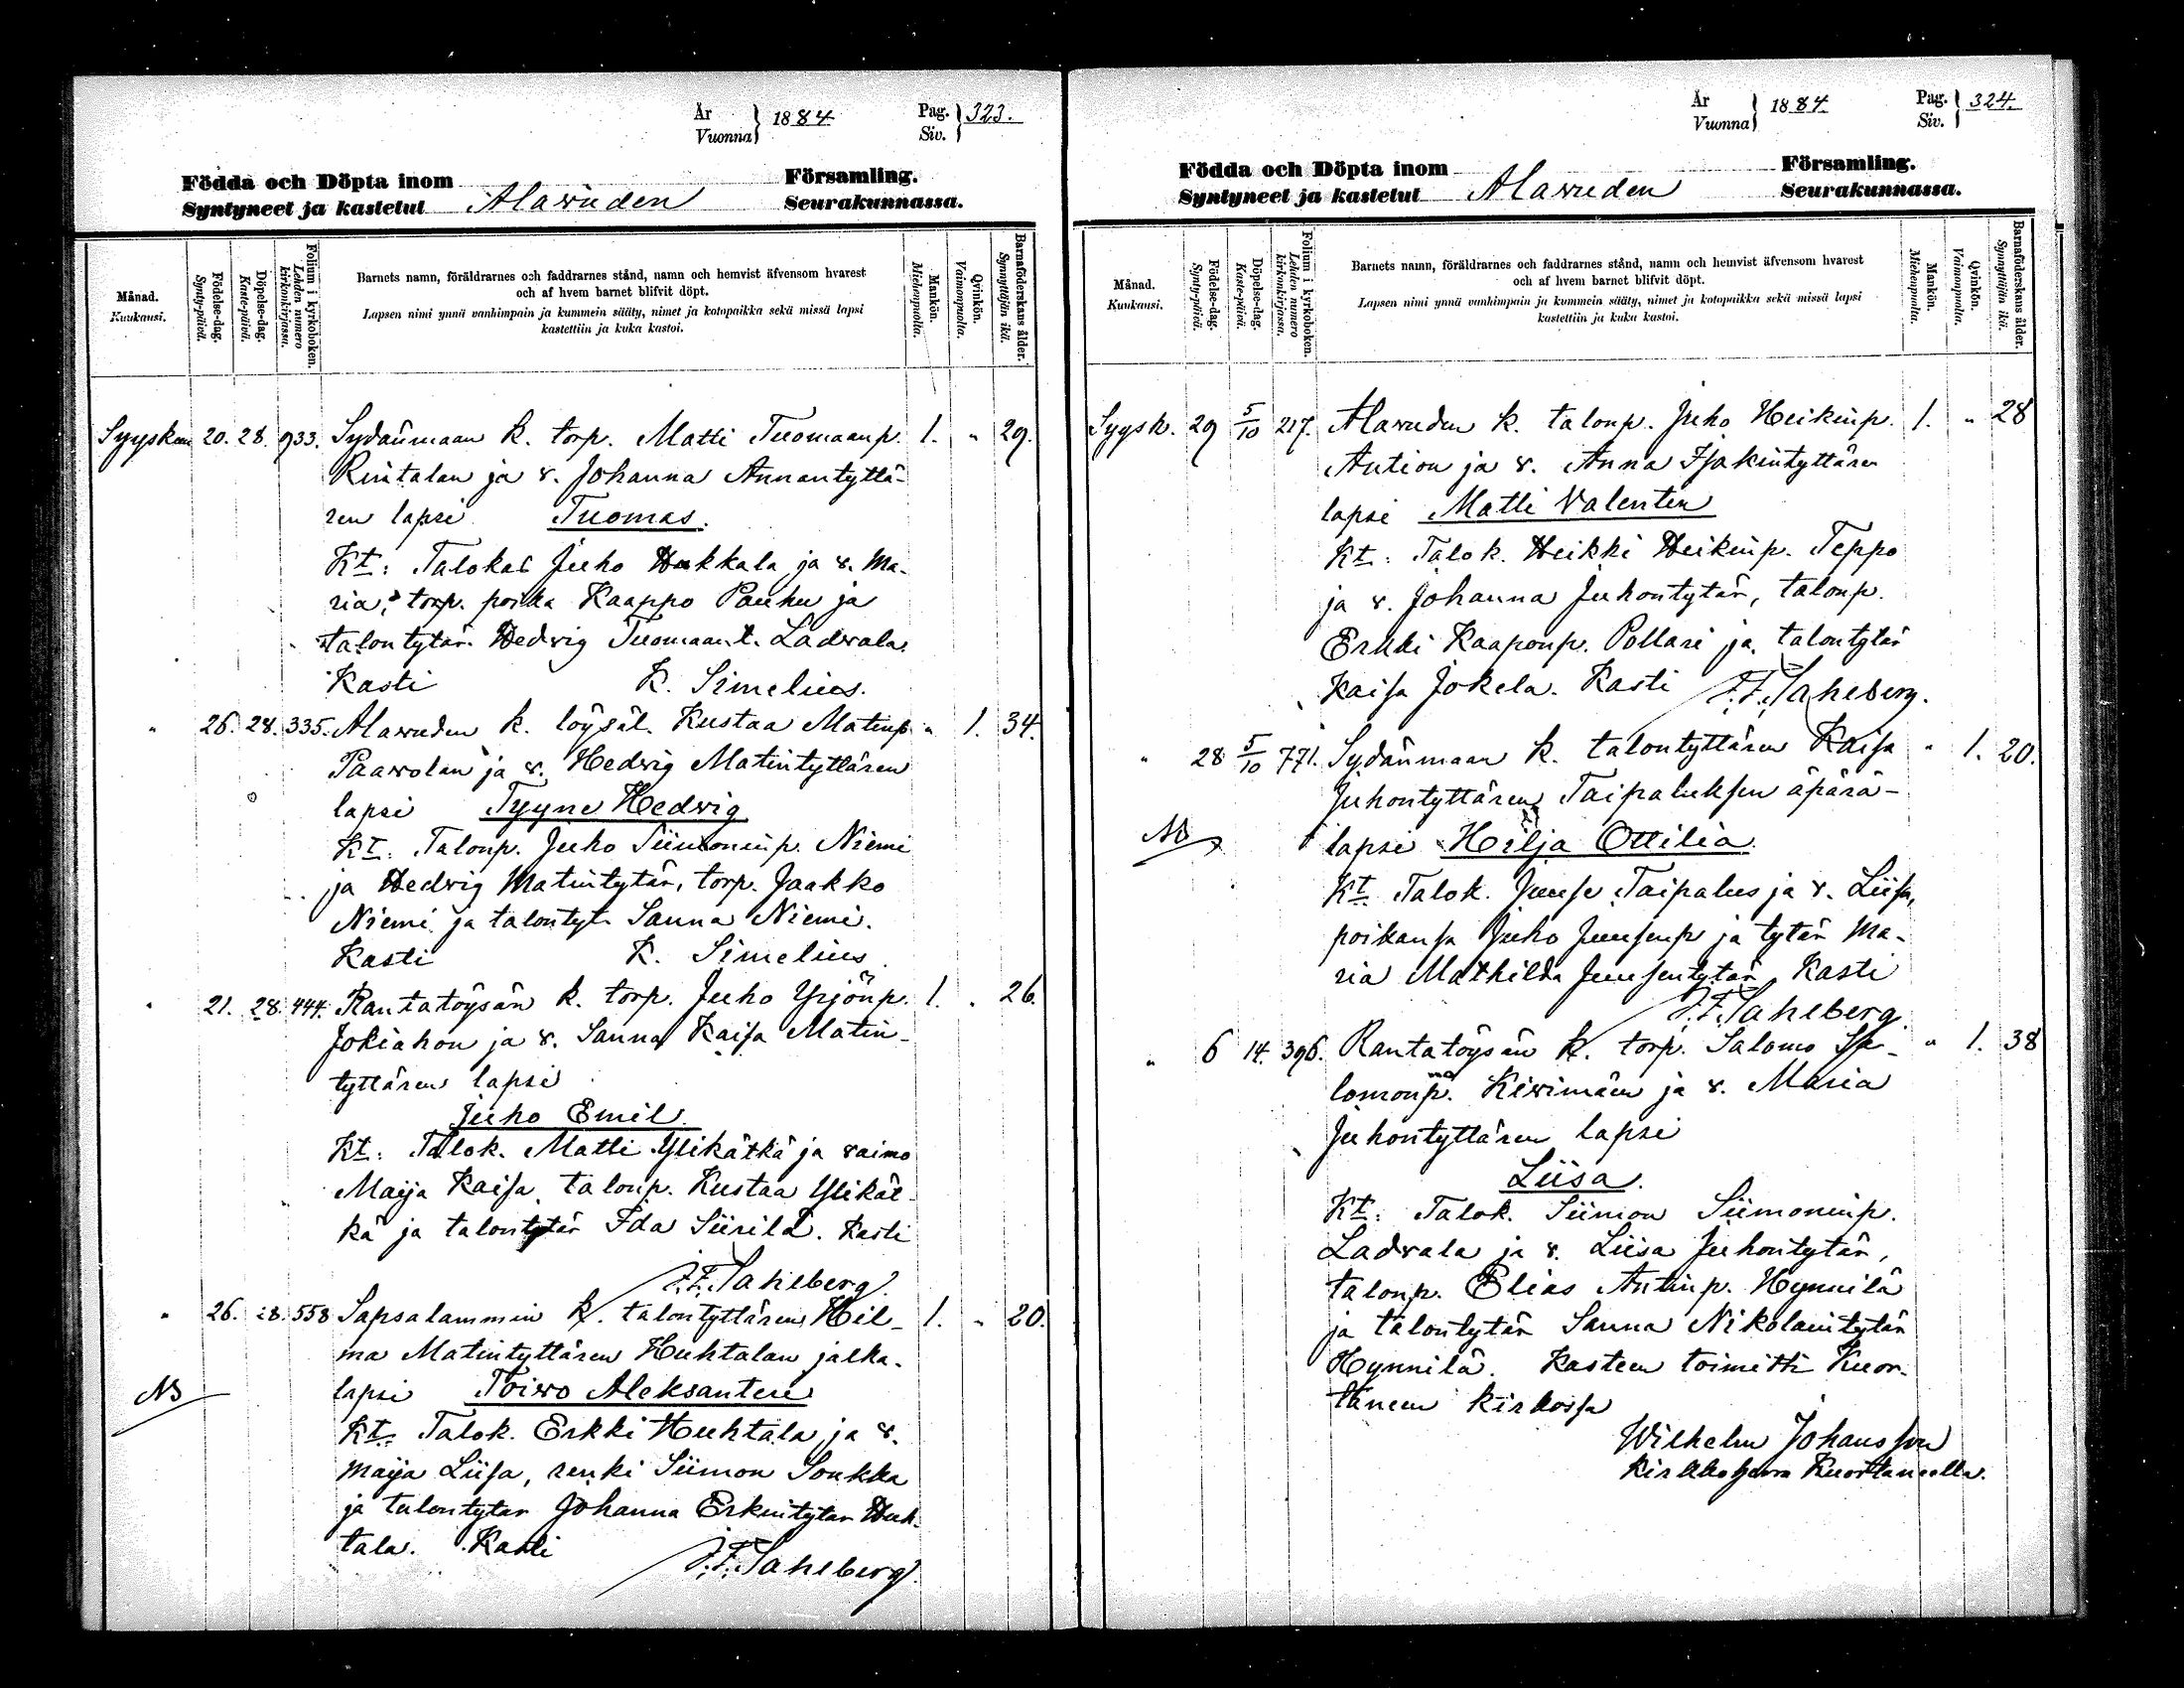 År
Vuonna } 1884 Pag.
Siv. } 323.
Födda och Döpta inom Församling.
Syntyneet ja kastetut Alawuden Seurakunnassa.
Månad.
Kuukausi.
Födelse-dag.
Synty-päivä.
Döpelse-dag.
Kaste-päivä.
Folium i kyrkoboken.
Lehden numero
kirkonkirjassa.
Barnets namn, föräldrarnes och faddrarnes stånd, namn och hemvist äfvensom hvarest
och af hvem barnet blifvit döpt.
Lapsen nimi ynnä vanhimpain ja kummein sääty, nimet ja kotopaikka sekä missä lapsi
kastettiin ja kuka kastoi.
Mankön.
Miehenpuolta.
Qvinkön.
Vaimonpuolta.
Barnaföderskans ålder.
Synnyttäjän ikä.
Syyskuu 20. 28. 933. Sydänmaan k. torp. Matti Tuomaanp. 1. " 29.
Rintalan ja v. Johanna Annantyttä-
ren lapsi Tuomas.
Kt: Talokas Juho Hakkala ja v. Ma-
ria, torp. poika Kaappo Pauhu ja
talontytär Hedvig Tuomaant. Ladvala.
Kasti K. Simelius.
" 26. 28. 335. Alawuden k. löysäl. Kustaa Matinp. " 1. 34.
Paavolan ja v. Hedvig Matintyttären
lapsi Tyyne Hedvig
Kt: Talonp. Juho Siimoninp. Niemi
ja Hedvig Matintytär, torp. Jaakko
Niemi ja talontyt. Sanna Niemi.
Kasti K. Simelius.
" 21. 28. 444. Rantatöysän k. torp. Juho Yrjönp. 1. " 26.
Jokiahon ja v. Sanna Kaisa Matin-
tyttären lapsi
Juho Emil.
Kt: Talok. Matti Ylikätkä ja vaimo
Maija Kaisa, talonp. Kustaa Ylikät-
kä ja talontytär Ida Siirilä. Kasti
J.F. Saheberg.
" 26. 28. 558 Sapsalammin k. talontyttären Hil- 1. " 20.
ma Matintyttären Huhtalan jalka-
NB lapsi Toivo Aleksanteri
Kt: Talok. Erkki Huhtala ja v.
Maija Liisa, renki Siimon Soukka
ja talontytär Johanna Erkintytär Huh-
tala. Kasti
J.F. Saheberg.
År
Vuonna } 1884. Pag.
Siv. } 324.
Födda och Döpta inom Församling.
Syntyneet ja kastetut Alawuden Seurakunnassa.
Månad.
Kuukausi.
Födelse-dag.
Synty-päivä.
Döpelse-dag.
Kaste-päivä.
Folium i kyrkoboken.
Lehden numero
kirkonkirjassa.
Barnets namn, föräldrarnes och faddrarnes stånd, namn och hemvist äfvensom hvarest
och af hvem barnet blifvit döpt.
Lapsen nimi ynnä vanhimpain ja kummein sääty, nimet ja kotopaikka sekä missä lapsi
kastettiin ja kuka kastoi.
Mankön.
Miehenpuolta.
Qvinkön.
Vaimonpuolta.
Barnaföderskans ålder.
Synnyttäjän ikä.
Syysk. 29 5/10 217. Alawuden k. talonp. Juho Heikinp. 1. " 28
Aution ja v. Anna Isakintyttären
lapsi Matti Valentin
Kt: Talok. Heikki Heikinp. Teppo
ja v. Johanna Juhontytär, talonp.
Erkki Kaaponp. Pollari ja talontytär
Kaisa Jokela. Kasti J.F. Saheberg.
" 28 5/10 771. Sydänmaan k. talontyttären Kaisa " 1. 20.
Juhontyttären Taipaluksen äpärä-
NB lapsi Hilja Ottilia.
Kt. Talok. Juuse Taipalus ja v. Liisa,
poikansa Juho Juusenp. ja tytär Ma-
ria Mathilda Juusentytär. Kasti
J.F. Saheberg.
" 6 14. 396. Rantatöysän k. torp. Salomo Sa- " 1. 38
lomonp. Kivimäen ja v. Maria
Juhontyttären lapsi
Liisa.
Kt: Talok. Siimon Siimoninp.
Ladvala ja v. Liisa Juhontytär,
talonp. Elias Antinp. Hynnilä
ja talontytär Sanna Nikolaintytär
Hynnilä. Kasteen toimitti Kuor-
taneen kirkossa
Wilhelm Johansson
Kirkkoherra Kuortaneella.